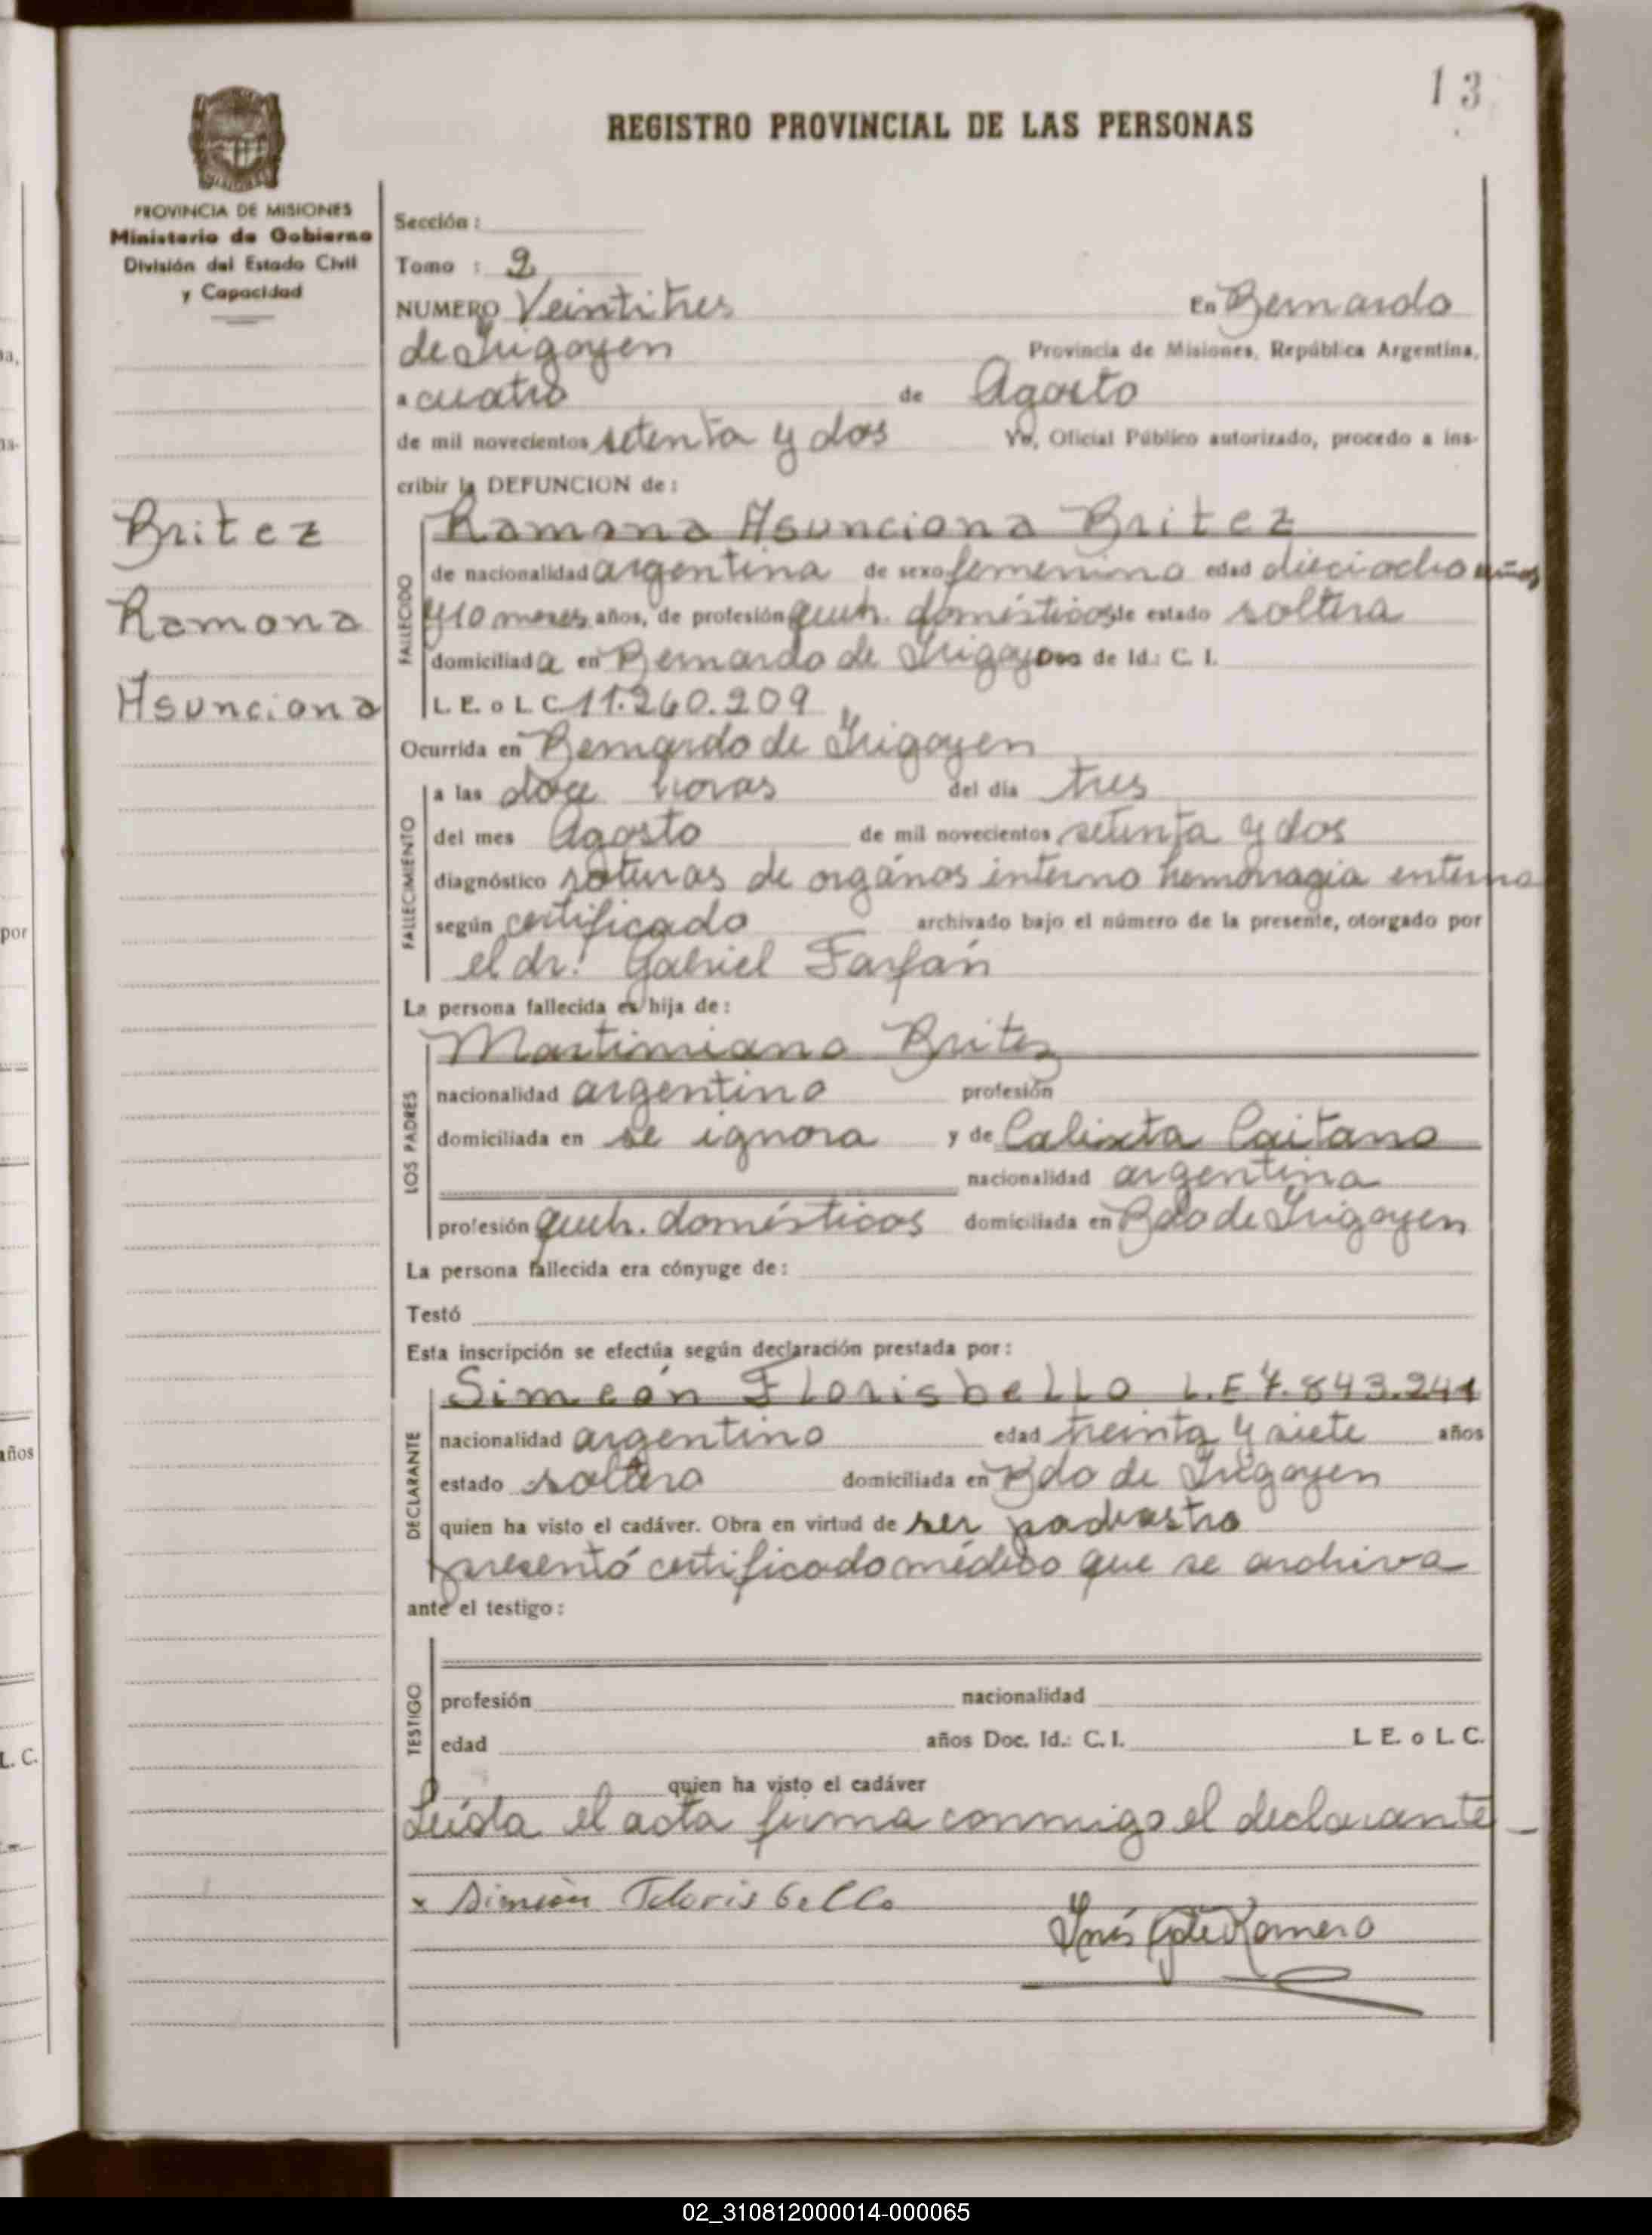 13
REGISTRO PROVINCIAL DE LAS PERSONAS
PROVINCIA DE MISIONES
Ministerio de Gobierno
División del Estado Civil
y Capacidad
Britez
Ramona
Asunciona
Sección:
Tomo : 2
NUMERO Veintitres En Bernardo
de Irigoyen Provincia de Misiones, República Argentina,
a cuatro de Agosto
de mil novecientos setenta y dos Yo, Oficial Público autorizado, procedo a ins-
cribir la DEFUNCION de:
FALLECIDO
Ramona Asunciona Britez
de nacionalidad argentina de sexo femenino edad dieciocho años
y 10 meses años, de profesión queh. domésticos de estado soltera
domiciliada en Bernardo de Irigoyen Doc de Id.: C. I.
L. E. o L. C. 11.260.209
Ocurrida en Bernardo de Irigoyen
FALLECIMIENTO
a las doce horas del día tres
del mes Agosto de mil novecientos setenta y dos
diagnóstico roturas de orgános interno hemorragia enterna
según certificado archivado bajo el número de la presente, otorgado por
el dr. Gabriel Farfán
La persona fallecida es hija de:
LOS PADRES
Martimiano Britez
nacionalidad argentino profesión
domiciliada en se ignora y de Calixta Caitano
nacionalidad argentina
profesión queh. domésticos domiciliada en Bdo de Irigoyen
La persona fallecida era cónyuge de:
Testó
Esta inscripción se efectúa según declaración prestada por:
DECLARANTE
Simeón Florisbello L.E 7.843.241
nacionalidad argentino edad treinta y siete años
estado soltero domiciliada en Bdo de Irigoyen
quien ha visto el cadáver. Obra en virtud de ser padrastro
presentó certificado médico que se archiva
ante el testigo:
TESTIGO
profesión nacionalidad
edad años Doc. Id.: C. I. L. E. o L. C.
quien ha visto el cadáver
Leída el acta firma conmigo el declarante
x Simeón Florisbello
Inés G de Romero
a,
por
años
L. C.
02_310812000014-000065